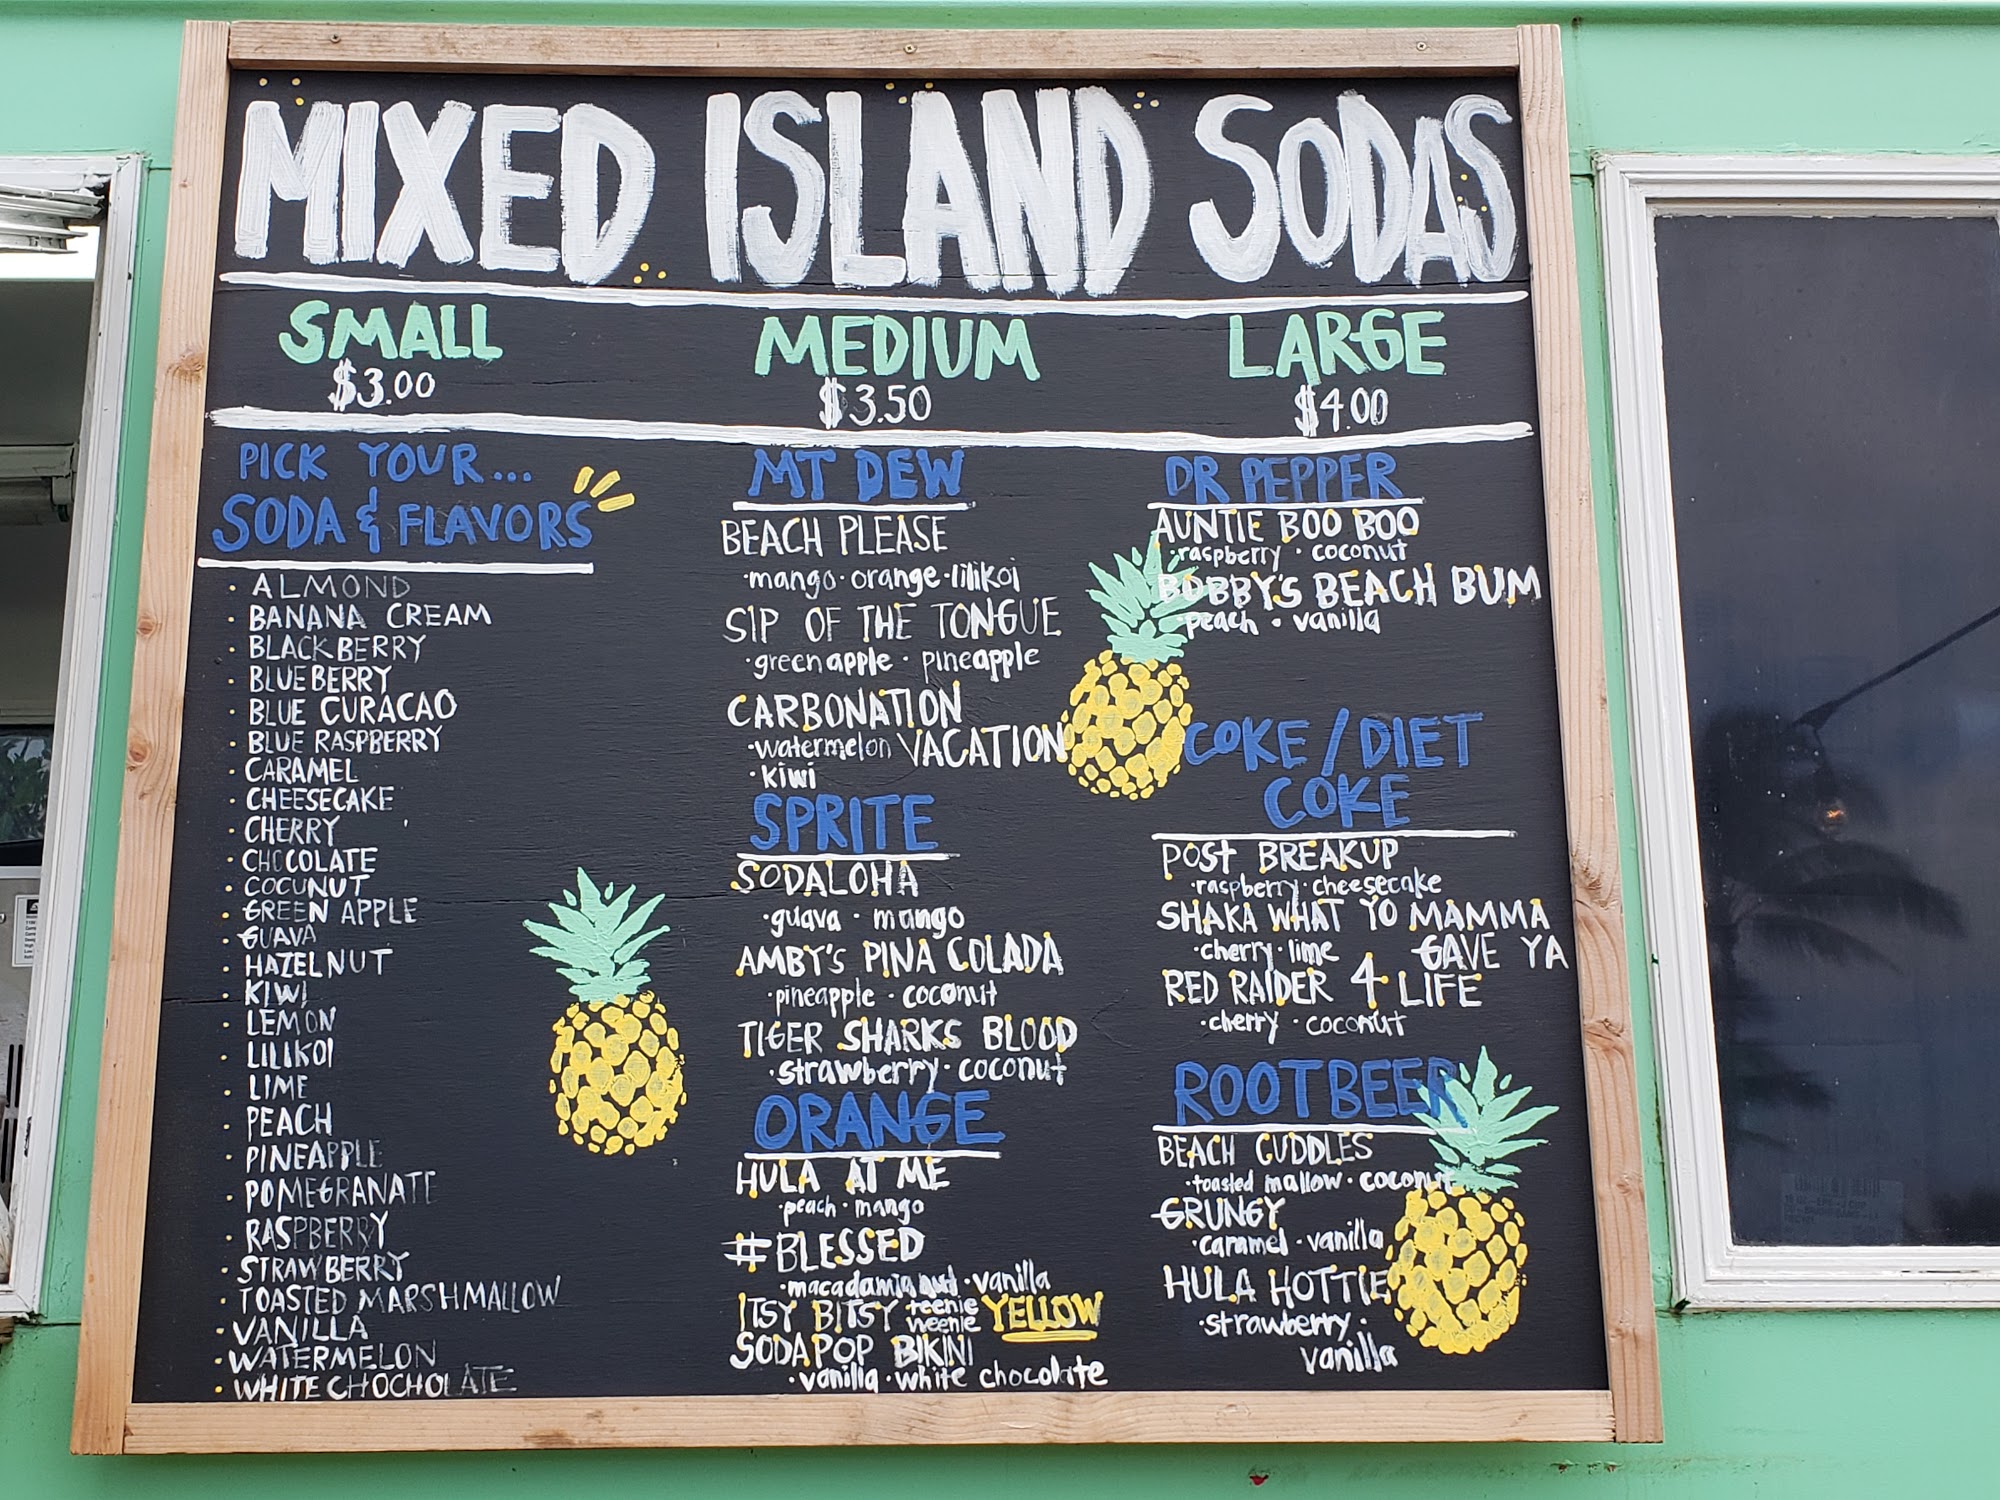 MIXED ISLAND SODAS
SMALL
$3.00
MEDIUM
$3.50
LARGE
$4.00
PICK YOUR...
SODA & FLAVORS
· ALMOND
· BANANA CREAM
· BLACKBERRY
· BLUEBERRY
· BLUE CURACAO
· BLUE RASPBERRY
· CARAMEL
· CHEESECAKE
· CHERRY
· CHOCOLATE
· COCUNUT
· GREEN APPLE
· GUAVA
· HAZELNUT
· KIWI
· LEMON
· LILIKOI
· LIME
· PEACH
· PINEAPPLE
· POMEGRANATE
· RASPBERRY
· STRAWBERRY
· TOASTED MARSHMALLOW
· VANILLA
· WATERMELON
· WHITE CHOCHOLATE
MT DEW
BEACH PLEASE
· mango · orange · lilikoi
SIP OF THE TONGUE
· green apple · pineapple
CARBONATION
· watermelon VACATION
· kiwi
SPRITE
SODALOHA
· guava · mango
AMBY'S PINA COLADA
· pineapple · coconut
TIGER SHARKS BLOOD
· strawberry · coconut
ORANGE
HULA AT ME
· peach · mango
#BLESSED
· macadamia nut · vanilla
ITSY BITSY teenie weenie YELLOW
SODAPOP BIKINI
· vanilla · white chocolate
DR PEPPER
AUNTIE BOO BOO
· raspberry · coconut
BOBBY'S BEACH BUM
· peach · vanilla
COKE / DIET
COKE
POST BREAKUP
· raspberry · cheesecake
SHAKA WHAT YO MAMMA
· cherry · lime GAVE YA
RED RAIDER 4 LIFE
· cherry · coconut
ROOTBEER
BEACH CUDDLES
· toasted mallow · coconut
GRUNGY
· caramel · vanilla
HULA HOTTIE
· strawberry ·
vanilla